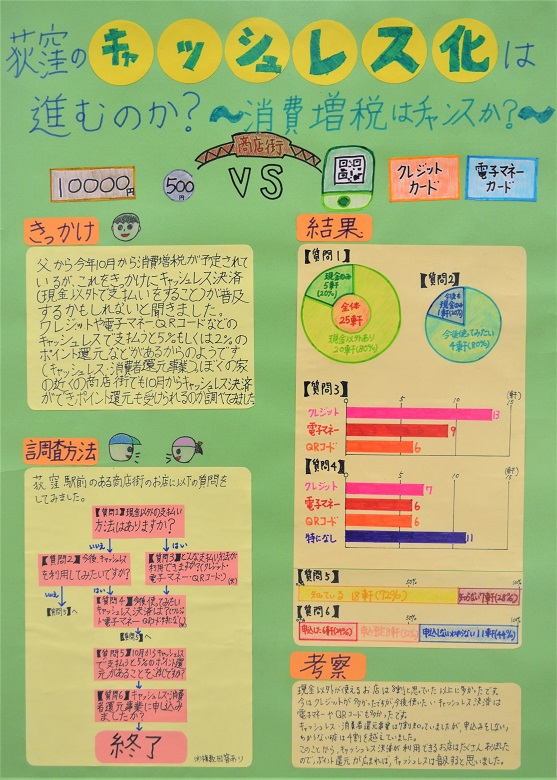 荻窪のキャッシュレス化は
進むのか?～消費増税はチャンスか?～
商店街
10000円
500円
VS
クレジット
カード
電子マネー
カード
きっかけ
父から今年10月から消費増税が予定されて
いるが、これをきっかけにキャッシュレス決済
(現金以外で支払いをすること)が普及
するかもしれないと聞きました。
クレジットや電子マネー、QRコードなどの
キャッシュレスで支払うと5%もしくは2%の
ポイント還元などがあるからのようです
(キャッシュレス・消費者還元事業)。ぼくの家
の近くの商店街でも10月からキャッシュレス決済
ができポイント還元も受けられるのか調べてみました
調査方法
荻窪駅前のある商店街のお店に以下の質問を
してみました。
【質問1】現金以外の支払い
方法はありますか?
いいえ
はい
【質問2】今後、キャッシュレス
を利用してみたいですか?
【質問3】どんな支払方法が
利用できますか?(クレジット・
電子マネー・QRコード)(※)
いいえ
はい
【質問4】今後使ってみたい
キャッシュレス決済は?
【質問5】へ
【質問5】10月からキャッシュレス
で支払うと5%のポイント還元
があることをご存じですか?
【質問6】キャッシュレス・消費
者還元事業に申し込み
ましたか?
終了
(※)複数回答あり
結果
【質問1】
現金のみ
5軒
(20%)
全体
25軒
現金以外あり
20軒(80%)
【質問2】
今後も
現金のみ
1軒(20%)
今後使ってみたい
4軒(80%)
【質問3】
0
5
10
15
(軒)
クレジット
13
電子マネー
9
QRコード
6
【質問4】
0
5
10
15
(軒)
クレジット
7
電子マネー
6
QRコード
6
特になし
11
【質問5】
0%
50%
100%
知っている 18軒(72%)
知らない 7軒(28%)
【質問6】
0%
50%
100%
申込した6軒(24%)
申込しない・わからない11軒(44%)
考察
現金以外が使えるお店は8割と思っていた以上に多かったです。
今はクレジットが多かったですが、今後使いたいキャッシュレス決済は
電子マネーやQRも多かったです。
キャッシュレス・消費者還元事業は7割は知っていましたが、申込みをしない、
わからない店は4割を越えていました。
このことから、キャッシュレス決済が利用できるお店はたくさんありました
ので、ポイント還元が広まれば、キャッシュレスは普及すると思いました。